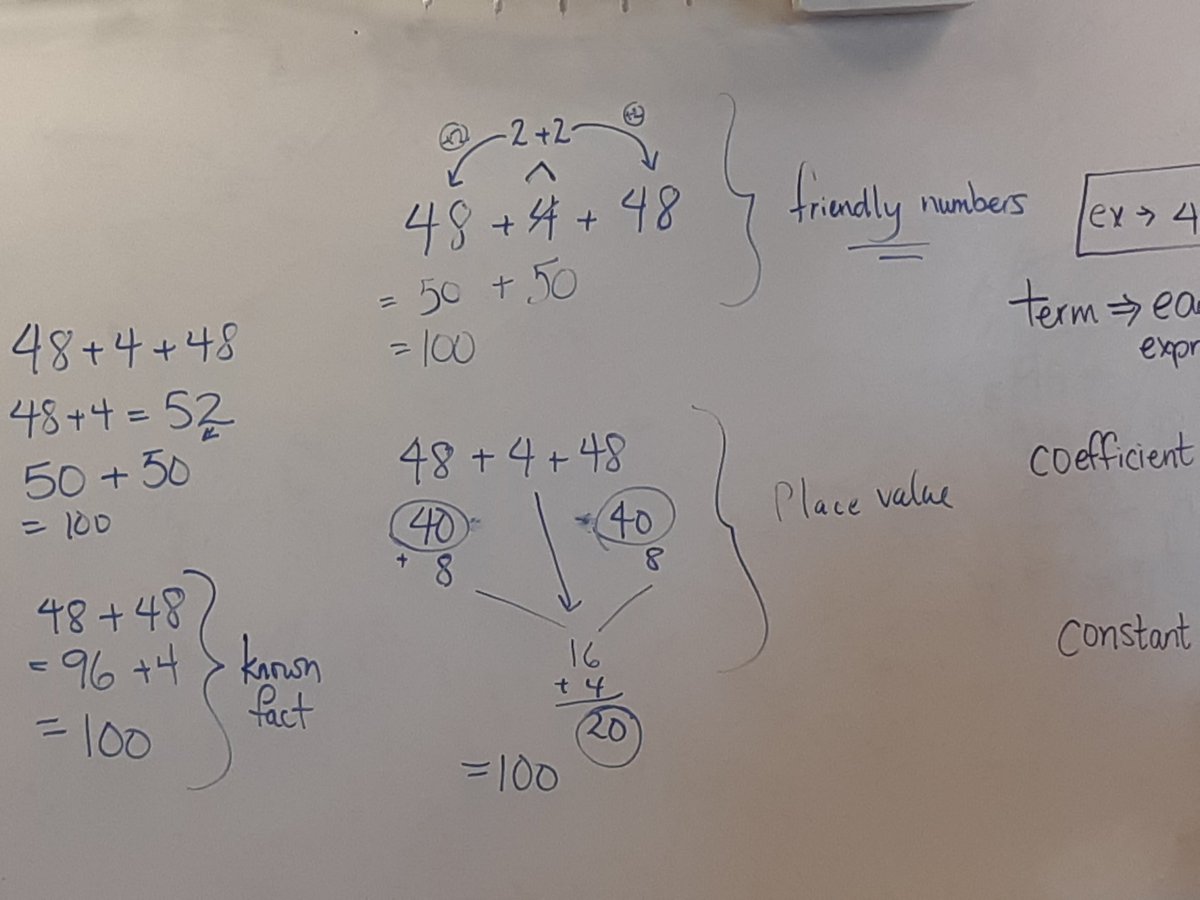 2 + 2
48 + 4 + 48
= 50 + 50
= 100
friendly numbers
48 + 4 + 48
48 + 4 = 52
50 + 50
= 100
48 + 48
= 96 + 4
= 100
known
fact
48 + 4 + 48
40 40
+ 8 8
16
+ 4
20
= 100
Place value
ex → 4
term ⇒ ea
expr
coefficient
constant